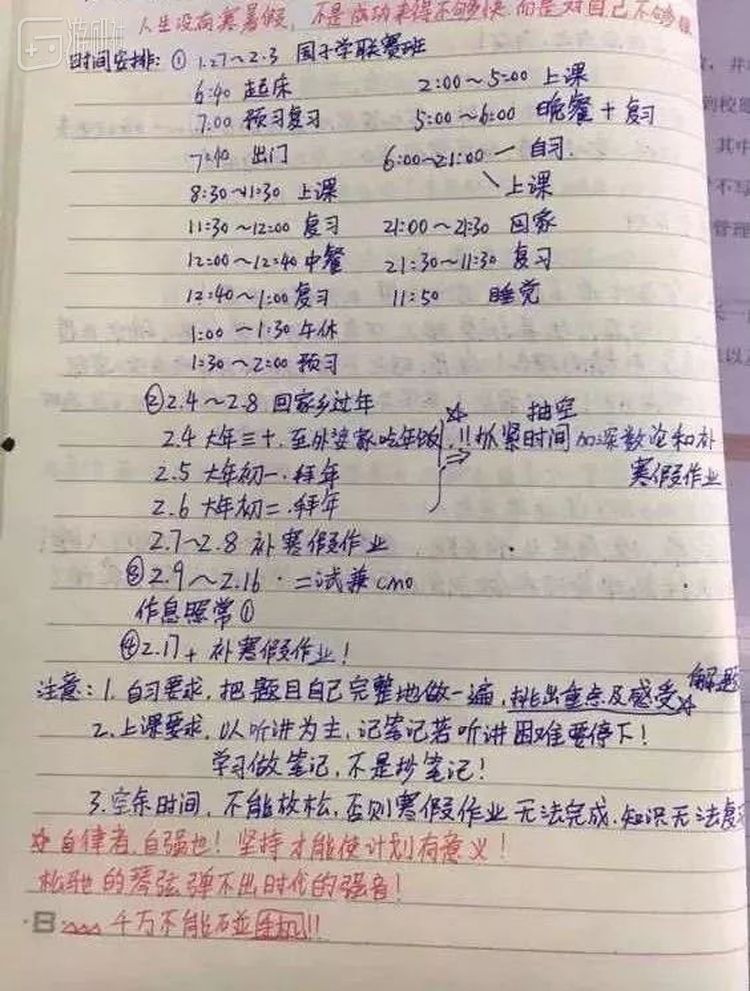 游侠
人生没有寒暑假，不是成功来得不够快，而是对自己不够狠
时间安排：① 1.27～2.3 国子学联赛班
6:40 起床 2:00～5:00 上课
7:00 预习复习 5:00～6:00 晚餐＋复习
7:40 出门 6:00～21:00 一 自习.
8:30～11:30 上课 上课
11:30～12:00 复习 21:00～21:30 回家
12:00～12:40 中餐 21:30～11:30 复习
12:40～1:00 复习 11:50 睡觉
1:00～1:30 午休
1:30～2:00 预习
②2.4～2.8 回家乡过年 抽空
2.4 大年三十，至外婆家吃年饭，!!抓紧时间加深数论和补
2.5 大年初一.拜年 寒假作业
2.6 大年初二.拜年
2.7～2.8 补寒假作业
③2.9～2.16 · 二试兼CMO
作息照常①
④2.17+ 补寒假作业！
注意：1.自习要求，把题目自己完整地做一遍，挑出重点及感受 解题
2.上课要求，以听讲为主，记笔记若听讲困难要停下！
学习做笔记，不是抄笔记！
3.空余时间，不能放松，否则寒假作业无法完成.知识无法复
☆自律者，自强也！坚持才能使计划有意义！
松弛的琴弦弹不出时代的强音！
千万不能碰手机!!